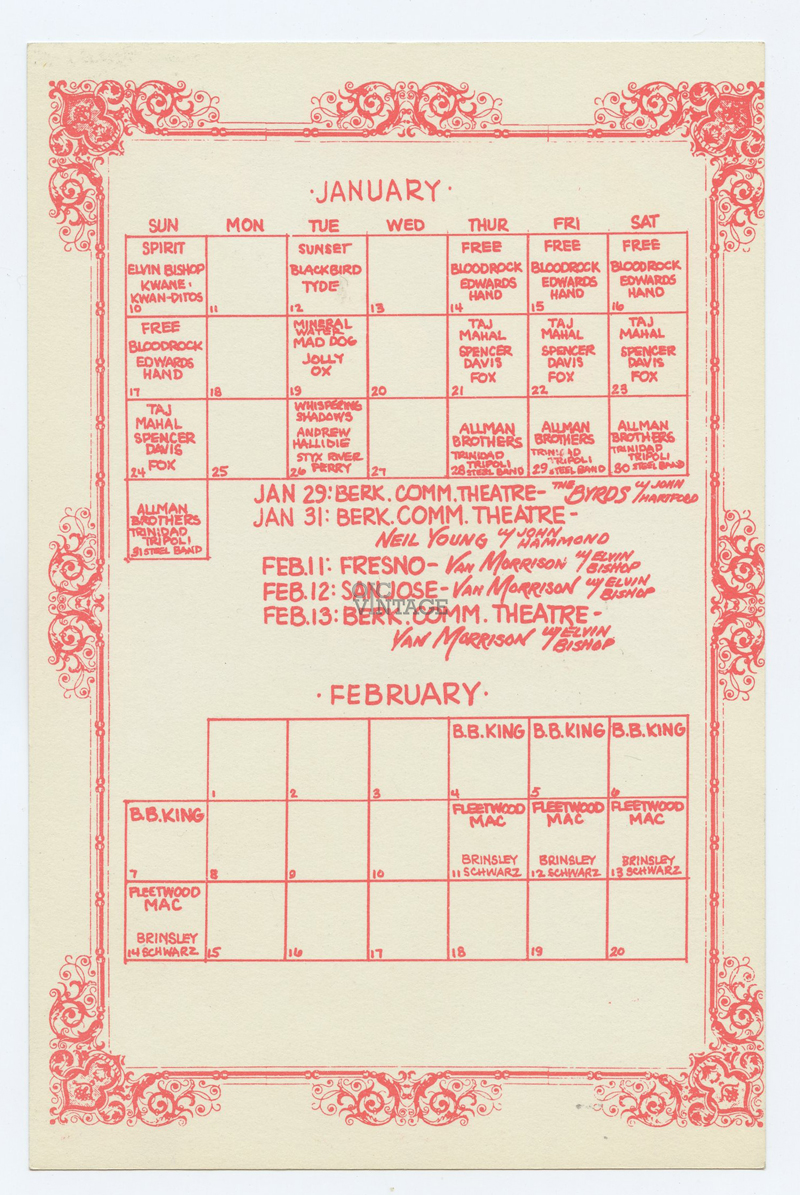 ·JANUARY·
SUN MON TUE WED THUR FRI SAT
SPIRIT
ELVIN BISHOP
KWANE &
KWAN-DITOS
10
11
SUNSET
BLACKBIRD
TYDE
12
13
FREE
BLOODROCK
EDWARDS
HAND
14
FREE
BLOODROCK
EDWARDS
HAND
15
FREE
BLOODROCK
EDWARDS
HAND
16
FREE
BLOODROCK
EDWARDS
HAND
17
18
MINERAL
WATER
MAD DOG
JOLLY
OX
19
20
TAJ
MAHAL
SPENCER
DAVIS
FOX
21
TAJ
MAHAL
SPENCER
DAVIS
FOX
22
TAJ
MAHAL
SPENCER
DAVIS
FOX
23
TAJ
MAHAL
SPENCER
DAVIS
FOX
24
25
WHISPERING
SHADOWS
ANDREW
HALLIDIE
STYX RIVER
26 FERRY
27
ALLMAN
BROTHERS
TRINIDAD
TRIPOLI
28 STEEL BAND
ALLMAN
BROTHERS
TRINIDAD
TRIPOLI
29 STEEL BAND
ALLMAN
BROTHERS
TRINIDAD
TRIPOLI
30 STEEL BAND
ALLMAN
BROTHERS
TRINIDAD
TRIPOLI
31 STEEL BAND
JAN 29: BERK. COMM. THEATRE- THE BYRDS W/ JOHN HARTFORD
JAN 31: BERK. COMM. THEATRE-
NEIL YOUNG W/ JOHN HAMMOND
FEB. 11: FRESNO- VAN MORRISON W/ ELVIN BISHOP
FEB. 12: SAN JOSE- VAN MORRISON W/ ELVIN BISHOP
FEB. 13: BERK. COMM. THEATRE-
VAN MORRISON W/ ELVIN BISHOP
VINTAGE
·FEBRUARY·
1
2
3
B.B. KING
4
B.B. KING
5
B.B. KING
6
B.B. KING
7
8
9
10
FLEETWOOD
MAC
BRINSLEY
11 SCHWARZ
FLEETWOOD
MAC
BRINSLEY
12 SCHWARZ
FLEETWOOD
MAC
BRINSLEY
13 SCHWARZ
FLEETWOOD
MAC
BRINSLEY
14 SCHWARZ
15
16
17
18
19
20